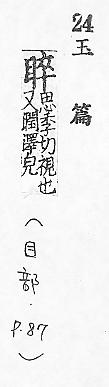 24
玉篇
睟思季切視也
又潤澤皃
(目部.
P.87)